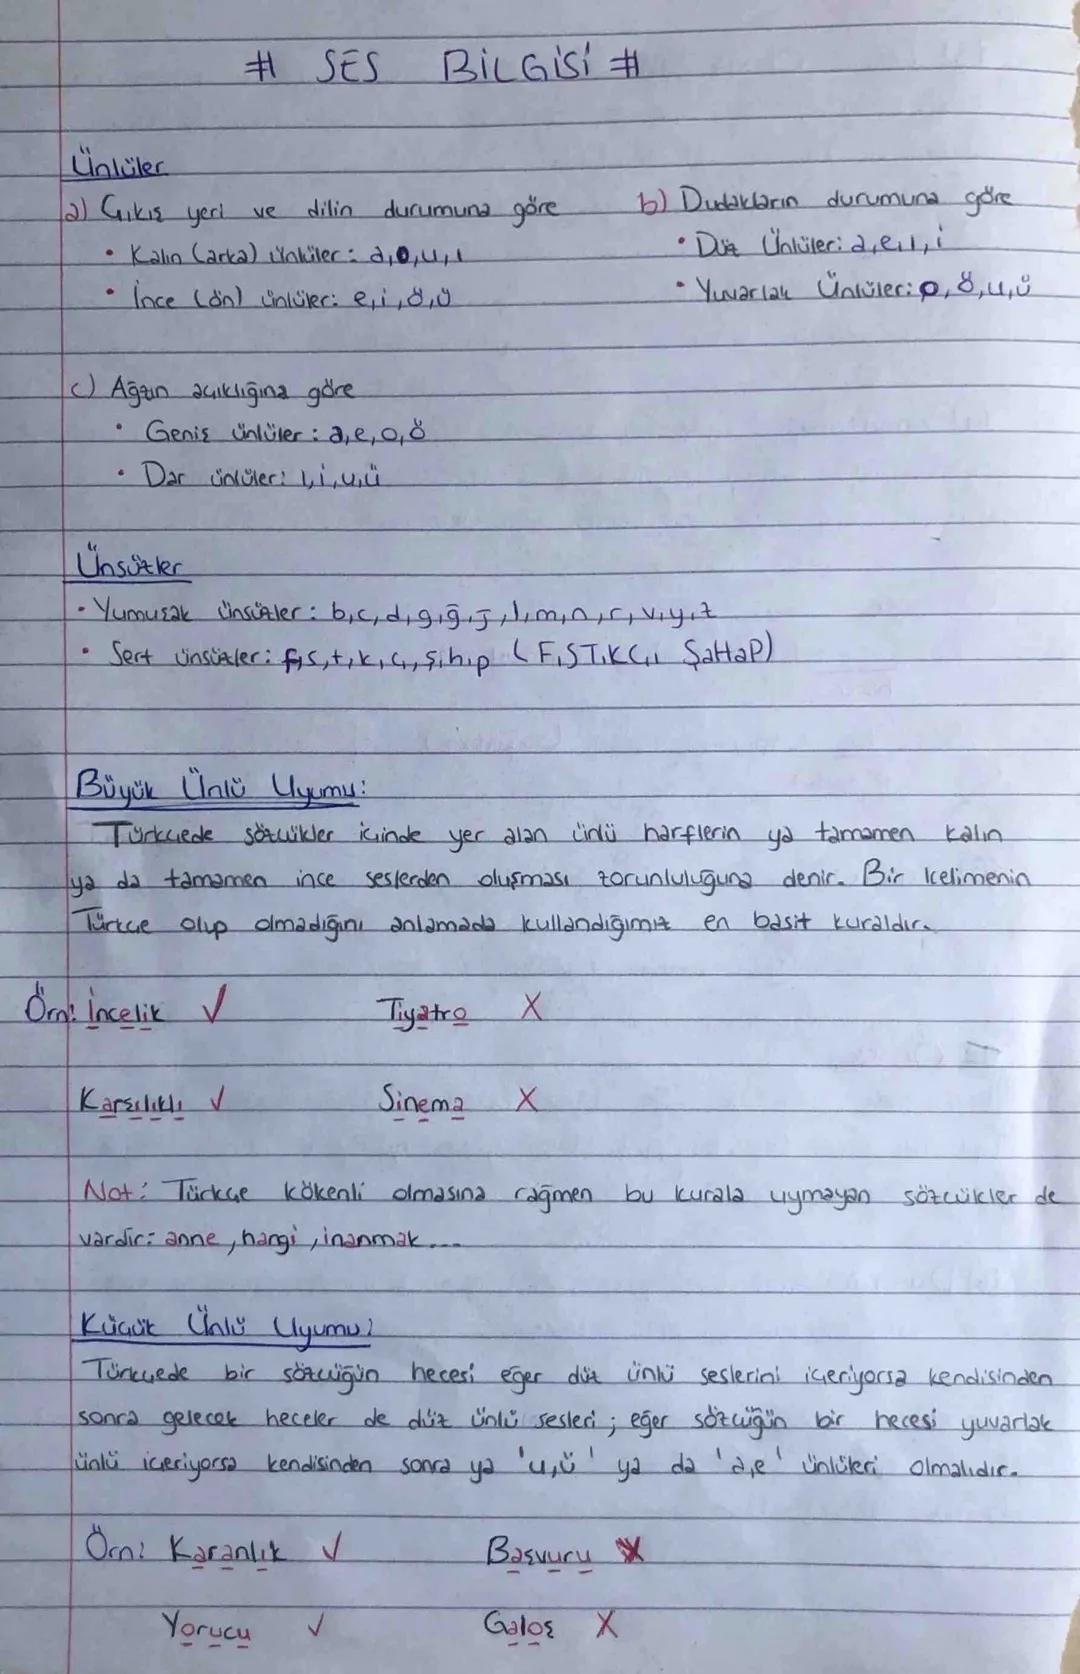 # SES BİLGİSİ #
Ünlüler
a) Çıkış yeri ve dilin durumuna göre
• Kalın (arka) ünlüler: a,o,u,ı
• İnce (ön) ünlüler: e,i,ö,ü
b) Dudakların durumuna göre
• Düz Ünlüler: a,e,ı,i
• Yuvarlak Ünlüler: o,ö,u,ü
c) Ağzın açıklığına göre
• Geniş ünlüler: a,e,o,ö
• Dar ünlüler: ı,i,u,ü
Ünsüzler
• Yumuşak ünsüzler: b,c,d,g,ğ,j,l,m,n,r,v,y,z
• Sert ünsüzler: f,s,t,k,ç,ş,h,p (FıSTıKÇı ŞaHaP)
Büyük Ünlü Uyumu:
Türkçede sözcükler içinde yer alan ünlü harflerin ya tamamen kalın
ya da tamamen ince seslerden oluşması zorunluluğuna denir. Bir kelimenin
Türkçe olup olmadığını anlamada kullandığımız en basit kuraldır.
Örn: İncelik ✓ Tiyatro X
Karşılıklı ✓ Sinema X
Not: Türkçe kökenli olmasına rağmen bu kurala uymayan sözcükler de
vardır: anne, hangi, inanmak...
Küçük Ünlü Uyumu:
Türkçede bir sözcüğün hecesi eğer düz ünlü seslerini içeriyorsa kendisinden
sonra gelecek heceler de düz ünlü sesleri; eğer sözcüğün bir hecesi yuvarlak
ünlü içeriyorsa kendisinden sonra ya 'u,ü' ya da 'a,e' ünlüleri olmalıdır.
Örn: Karanlık ✓ Başvuru X
Yorucu ✓ Galoş X